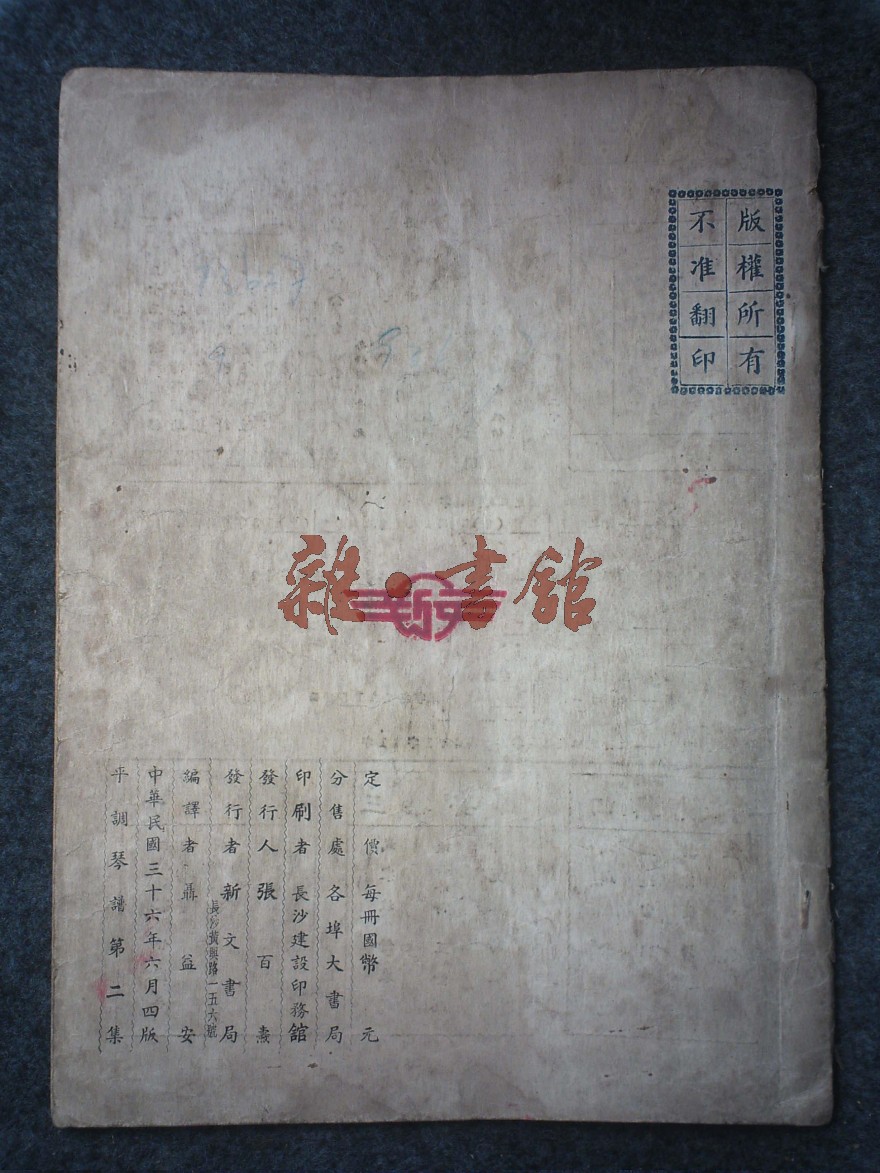 版權所有
不准翻印
雜·書館
新文
定價每冊國幣 元
分售處各埠大書局
印刷者長沙建設印務館
發行人張百燾
發行者新文書局
長沙黃興路一五六號
編譯者聶益安
中華民國三十六年六月四版
平調琴譜第二集